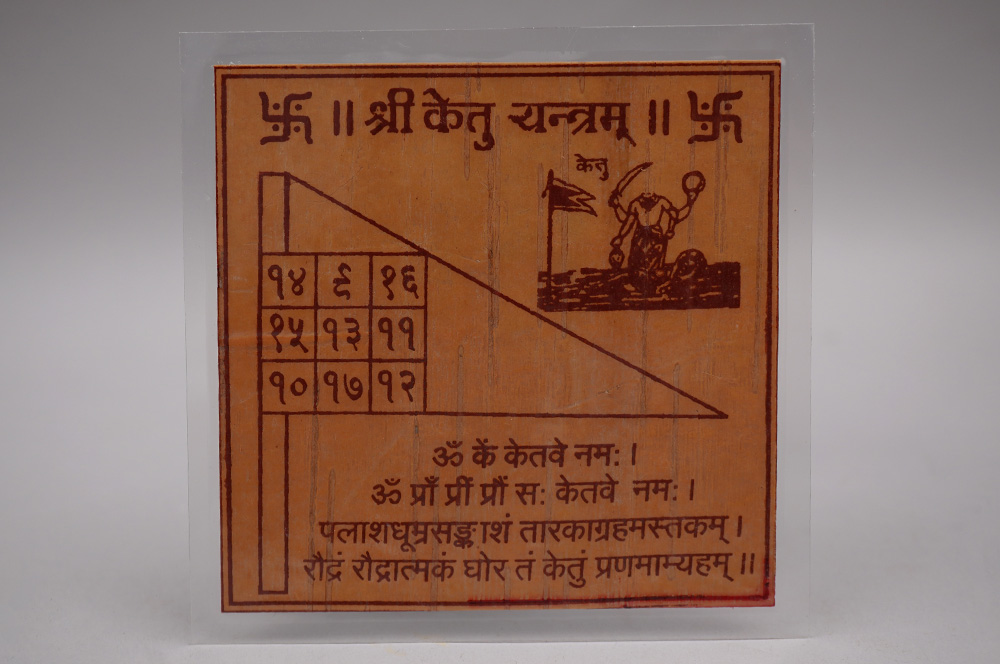 ॥ श्री केतु यन्त्रम् ॥
केतु
१४ ९ १६
१५ १३ ११
१० १७ १२
ॐ कें केतवे नमः।
ॐ प्राँ प्रीं प्रौं सः केतवे नमः।
पलाशधूम्रसङ्काशं तारकाग्रहमस्तकम्।
रौद्रं रौद्रात्मकं घोर तं केतुं प्रणमाम्यहम्॥